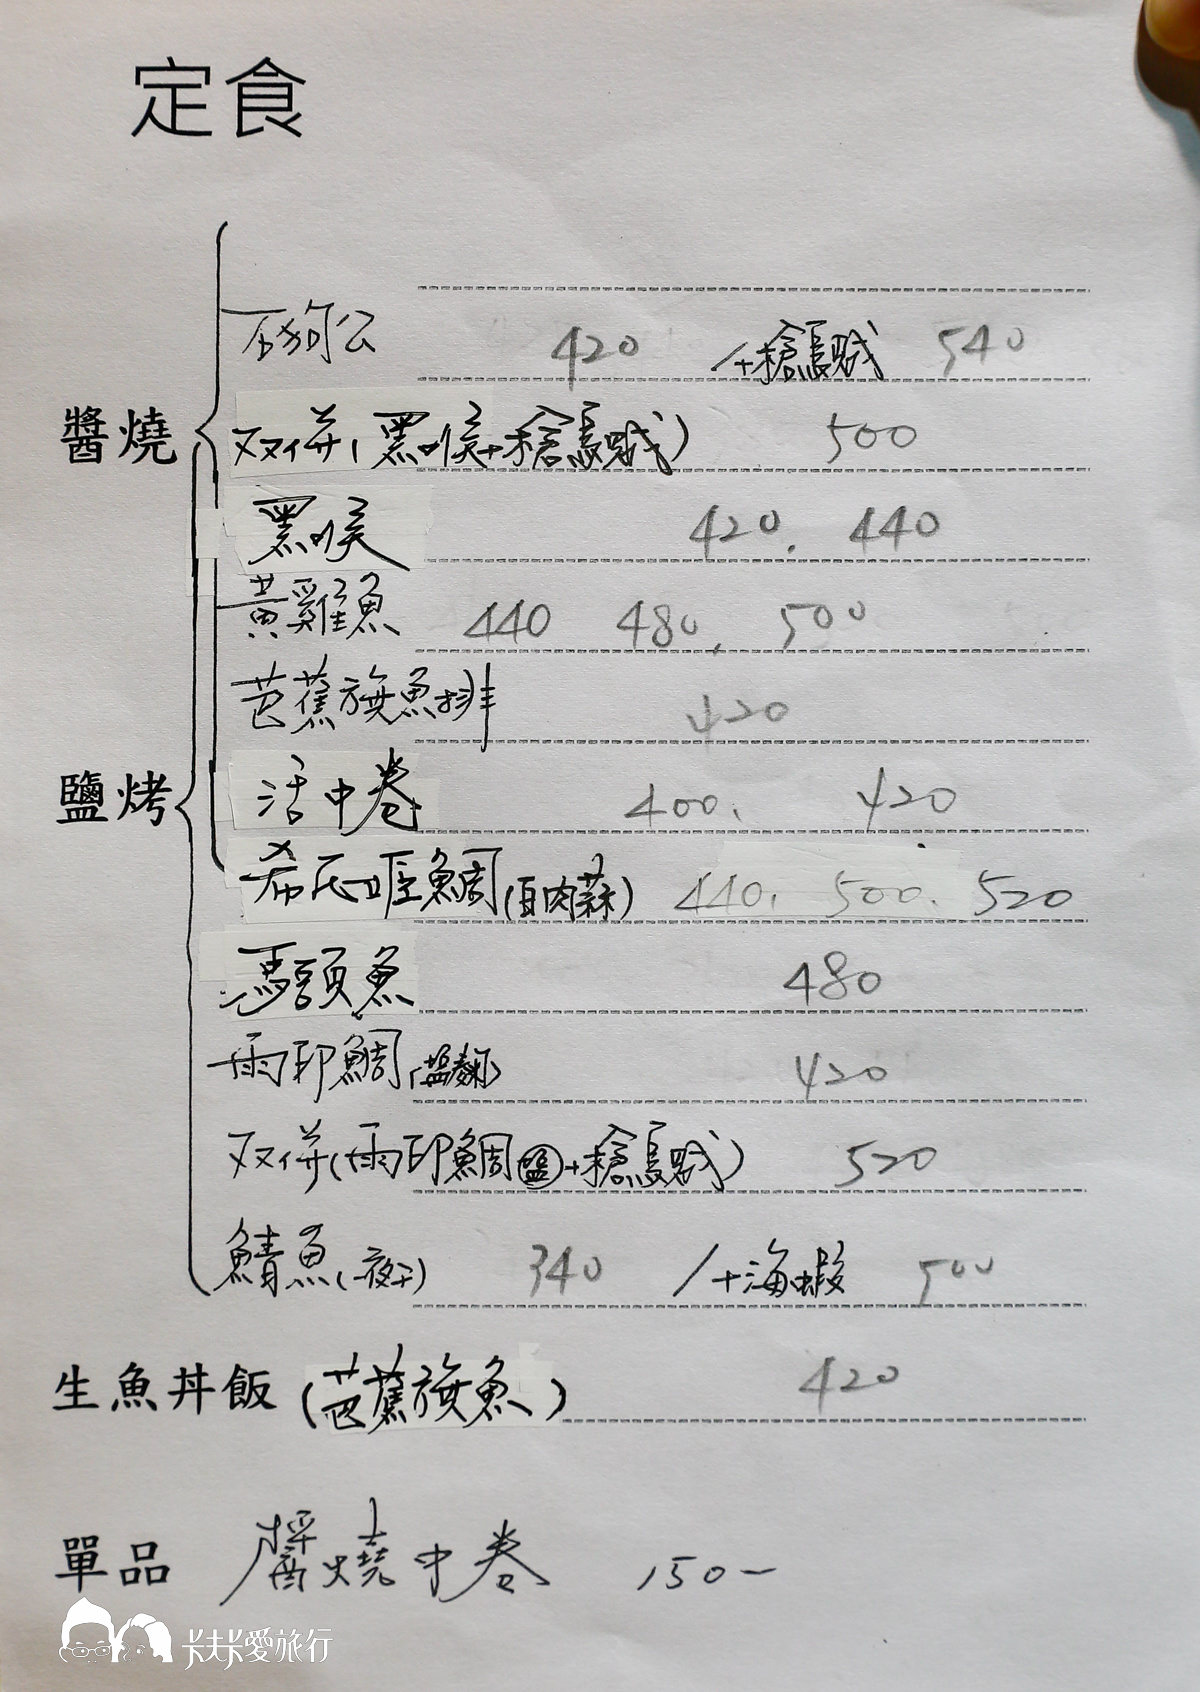 定食
石狗公 420 /+槍烏賊 540
醬燒
双併(黑喉+槍烏賊) 500
黑喉 420. 440
黃雞魚 440 480. 500
芭蕉旗魚排 420
鹽烤
活中卷 400. 420
希氏 鯛(白肉蒜) 440. 500. 520
馬頭魚 480
雨印鯛(鹽麴) 420
双併(雨印鯛鹽+槍烏賊) 520
鯖魚(一夜干) 340 /+海蝦 500
生魚丼飯 (芭蕉旗魚) 420
單品 醬燒中卷 150-
卡夫卡愛旅行